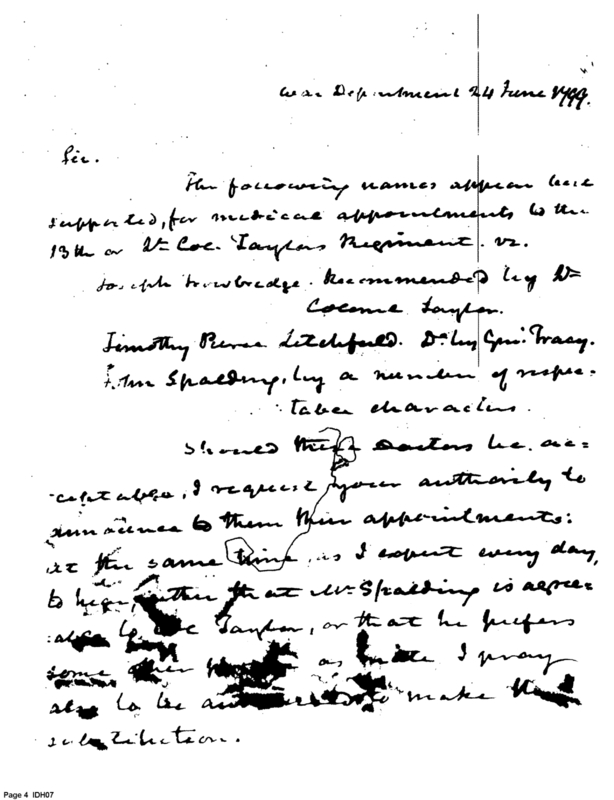 War Department 24 June 1799.
Sir.
The following names appear best
supported, for medical appointments to the
13th or Lt Col. Taylors Regiment. vz.
Joseph Trowbredge. Recommended by Lt
Colonel Taylor.
Timothy Pierce Litchfield. Do. by Genl. Tracy.
John Spalding, by a number of respec=
table characters.
Should these Doctors be. ac=
ceptable, I request your authority to
announce to them their appointments:
at the same time, as I expect every day,
to hear, either that Mr Spalding is agree=
able to Col Taylor, or that he prefers
some other as I pray
also to be to make the
substitution.
Page 4 IDH07